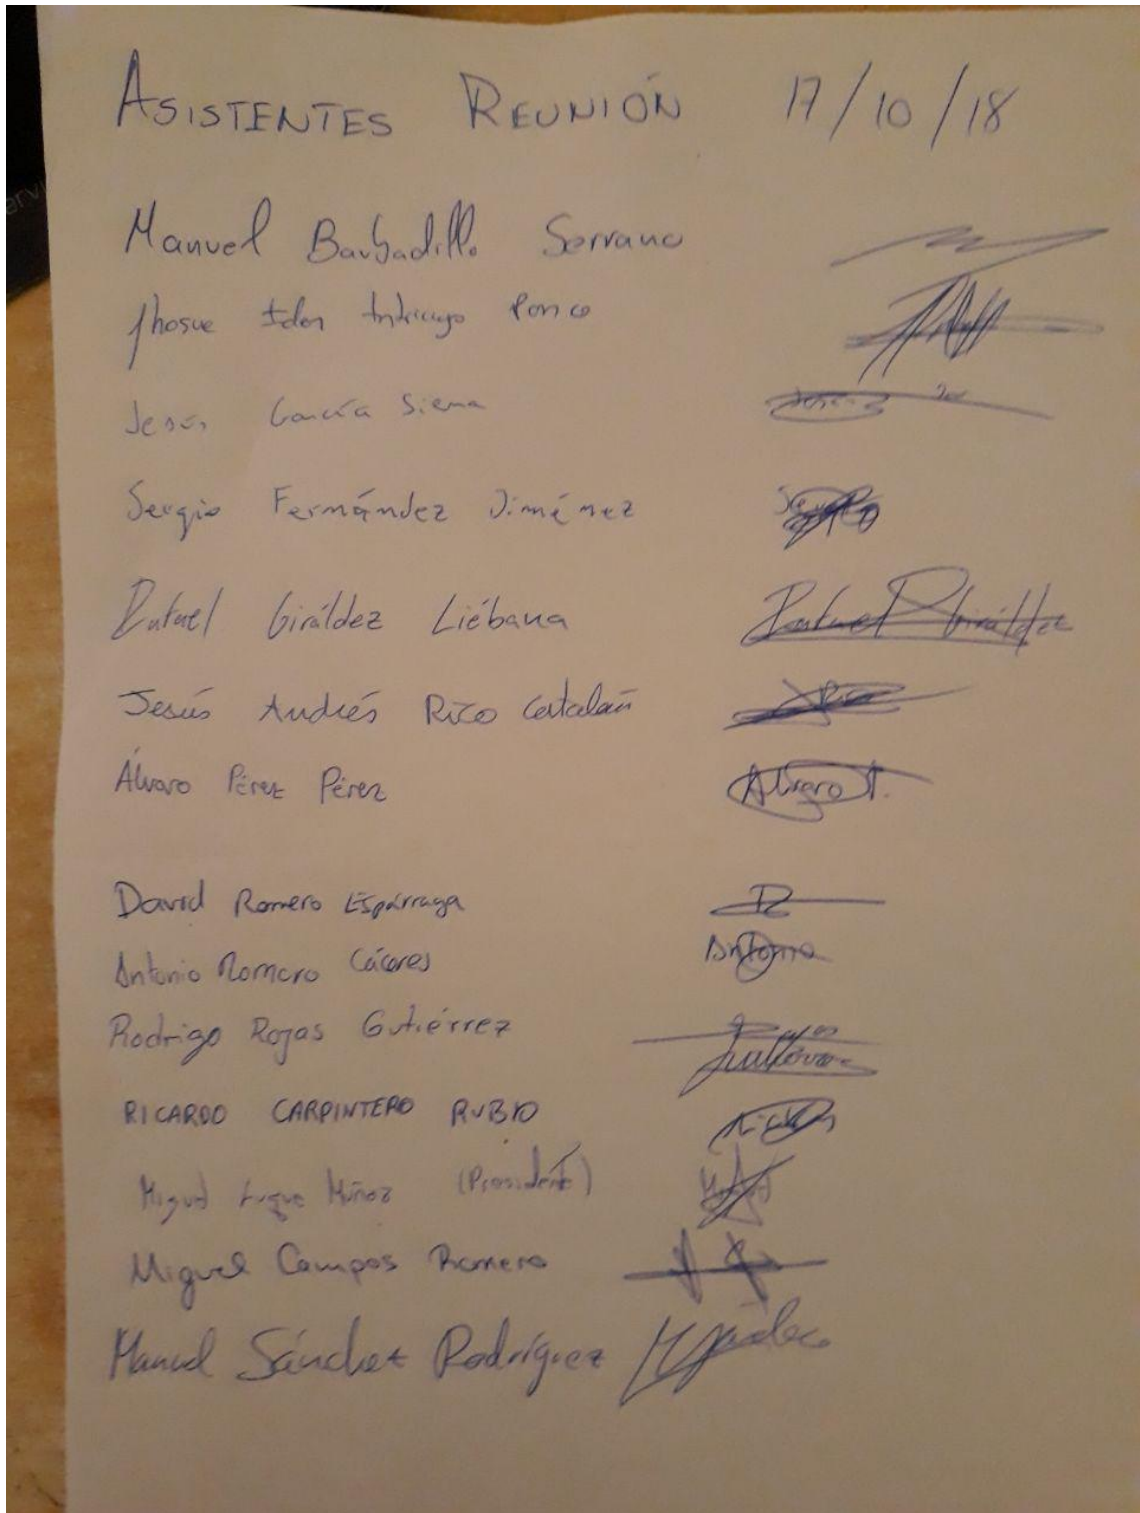 ASISTENTES REUNIÓN 17/10/18
Manuel Barbadillo Serrano
Jhosue Intriago Ponce
Jesús García Sierra
Sergio Fernández Jiménez
Rafael Giráldez Liébana Rafael Giráldez
Jesús Andrés Rico Catalán Rico
Álvaro Pérez Pérez Álvaro P.
David Romero Espárraga
Antonio Romero Cáceres Antonio
Rodrigo Rojas Gutiérrez Rojas
Gutiérrez
RICARDO CARPINTERO RUBIO
Miguel Luque Muñoz (Presidente)
Miguel Campos Romero
Manuel Sánchez Rodríguez